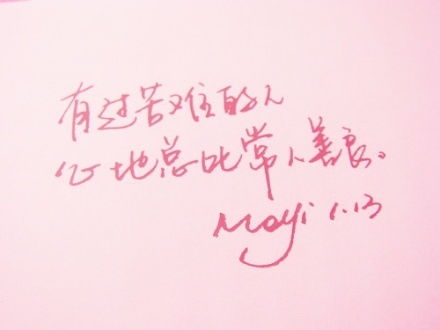 有过苦难的人
心地总比常人善良。
Moyi 1.13